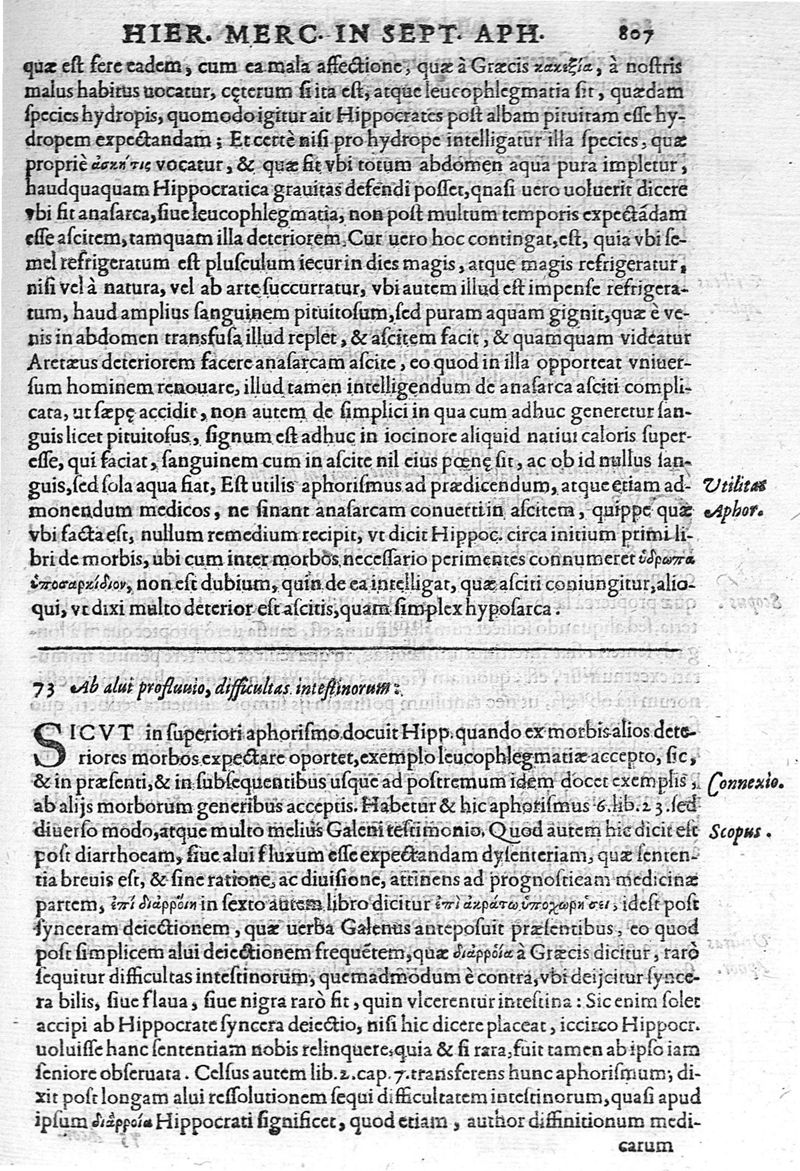 HIER. MERC. IN SEPT. APH. 807
quæ est fere eadem, cum ea mala affectione, quæ à Græcis κακεξία, à nostris
malus habitus uocatur, cęterum si ita est, atque leucophlegmatia sit, quædam
species hydropis, quomodo igitur ait Hippocrates post albam pituitam esse hy-
dropem expectandam; Et certè nisi pro hydrope intelligatur illa species, quæ
propriè ἀσκήτις vocatur, & quæ fit vbi totum abdomen aqua pura impletur,
haudquaquam Hippocratica grauitas defendi posset, qnasi uero uoluerit dicere
vbi fit anasarca, siue leucophlegmatia, non post multum temporis expectãdam
esse ascitem, tamquam illa deteriorem. Cur uero hoc contingat, est, quia vbi se-
mel refrigeratum est plusculum iecur in dies magis, atque magis refrigeratur,
nisi vel à natura, vel ab arte succurratur, vbi autem illud est impense refrigera-
tum, haud amplius sanguinem pituitosum, sed puram aquam gignit, quæ è ve-
nis in abdomen transfusa illud replet, & ascitem facit, & quamquam videatur
Aretæus deteriorem facere anasarcam ascite, eo quod in illa opporteat vniuer-
sum hominem renouare, illud tamen intelligendum de anasarca asciti compli-
cata, ut sæpę accidit, non autem de simplici in qua cum adhuc generetur san-
guis licet pituitosus, signum est adhuc in iocinore aliquid natiui caloris super-
esse, qui faciat, sanguinem cum in ascite nil eius pœnę sit, ac ob id nullus san-
guis, sed sola aqua fiat, Est utilis aphorismus ad prædicendum, atque etiam ad- Utilitas
monendum medicos, ne sinant anasarcam conuerti in ascitem, quippe quæ Aphor.
vbi facta est, nullum remedium recipit, vt dicit Hippoc. circa initium primi li-
bri de morbis, ubi cum inter morbos necessario perimentes connumeret ὑδρωπα
ὑποσαρκίδιον, non est dubium, quin de ea intelligat, quæ asciti coniungitur, alio-
qui, vt dixi multo deterior est ascitis, quam simplex hyposarca.
73 Ab alui profluuio, difficultas intestinorum.
SICVT in superiori aphorismo docuit Hipp. quando ex morbis alios dete-
riores morbos expectare oportet, exemplo leucophlegmatiæ accepto, sic,
& in præsenti, & in subsequentibus usque ad postremum idem docet exemplis, Connexio.
ab alijs morborum generibus acceptis. Habetur & hic aphorismus 6. lib. 23. sed
diuerso modo, atque multo melius Galeni testimonio. Quod autem hic dicit est Scopus.
post diarrhoeam, siue alui fluxum esse expectandam dysenteriam, quæ senten-
tia breuis est, & sine ratione, ac diuisione, attinens ad prognosticam medicinæ
partem, ἐπὶ διαρροίῃ in sexto autem libro dicitur ἐπὶ ἀκράτω ὑποχωρήσει, idest post
synceram deiectionem, quæ uerba Galenus anteposuit præsentibus, eo quod
post simplicem alui deiectionem frequẽtem, quæ διαρροία à Græcis dicitur, rarò
sequitur difficultas intestinorum, quemadmodum è contra, vbi deijcitur synce-
ra bilis, siue flaua, siue nigra rarò fit, quin vlcerentur intestina: Sic enim solet
accipi ab Hippocrate syncera deiectio, nisi hic dicere placeat, iccirco Hippocr.
uoluisse hanc sententiam nobis relinquere, quia & si rara, fuit tamen ab ipso iam
seniore obseruata. Celsus autem lib. 2. cap. 7. transferens hunc aphorismum, di-
xit post longam alui ressolutionem sequi difficultatem intestinorum, quasi apud
ipsum διαρροία Hippocrati significet, quod etiam, author diffinitionum medi-
carum